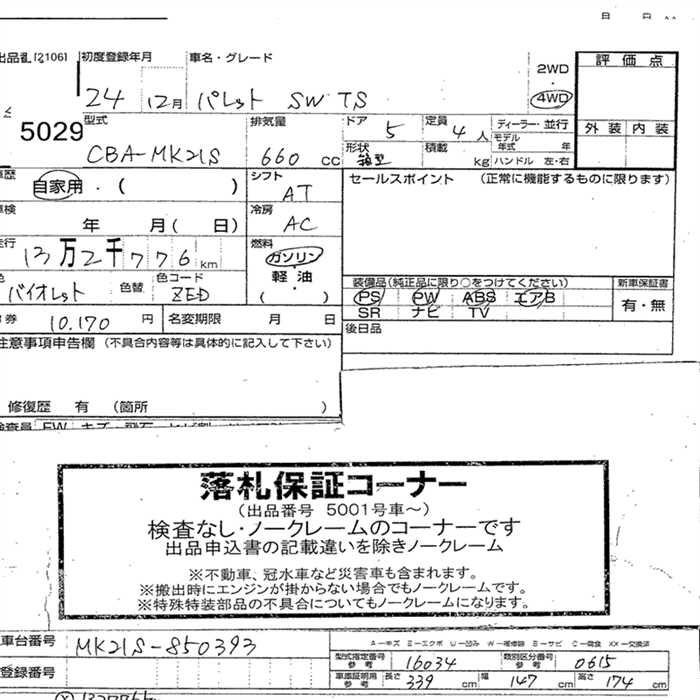 月 日
出品番 (2106) 初度登録年月 車名・グレード 評価点
24 12月 パレット SW TS 2WD ・ 4WD
5029 型式 排気量 ドア 定員 ディーラー・並行 外装 内装
CBA-MK21S 660 cc 5 4人 モデル年式 年
形状 箱型 積載 kg ハンドル 左・右
車歴 自家用・( ) シフト AT セールスポイント (正常に機能するものに限ります)
車検 年 月( 日) 冷房 AC
走行 13万2千776 km 燃料 ガソリン・軽油 ( )
色 バイオレット 色替 色コード ZED
装備品(純正品に限り○をつけてください) 新車保証書
PS PW ABS エアB 有・無
SR ナビ TV
券 10.170 円 名変期限 月 日 後日品
注意事項申告欄 (不具合内容等は具体的に記入して下さい)
修復歴 有 (箇所 )
検査員 FW キズ・飛石
落札保証コーナー
(出品番号 5001号車〜)
検査なし・ノークレームのコーナーです
出品申込書の記載違いを除きノークレーム
※不動車、冠水車など災害車も含まれます。
※搬出時にエンジンが掛からない場合でもノークレームです。
※特殊特装部品の不具合についてもノークレームになります。
車台番号 MK21S-850393
A…キズ E…エクボ U…凹み W…補修跡 S…サビ C…腐食 XX…交換済
型式指定番号 参考 16034 類別区分番号 参考 0615
登録番号 車庫証明用 参考 長さ 339 cm 幅 147 cm 高さ 174 cm